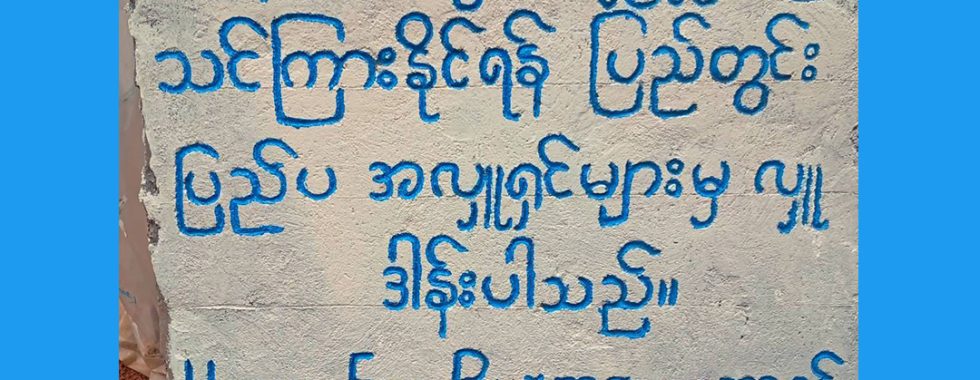 သင်ကြားနိုင်ရန် ပြည်တွင်း
ပြည်ပ အလှူရှင်များမှ လှူ
ဒါန်းပါသည်။